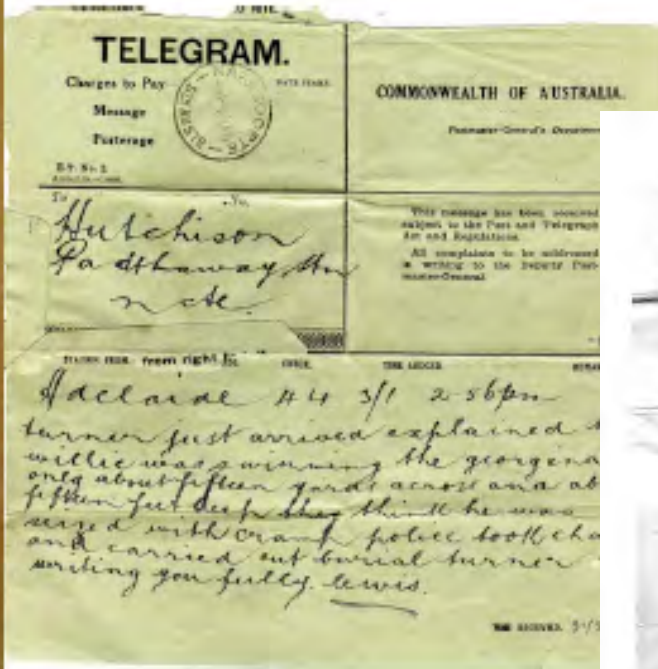 TELEGRAM.
Charges to Pay
Message
Porterage
COMMONWEALTH OF AUSTRALIA.
Postmaster-General's Department
To
No.
Hutchison
Padthaway Stn
n cte
This message has been received
subject to the Post and Telegraph
Act and Regulations.
All complaints to be addressed
in writing to the Deputy Post-
master-General
STATION FROM. from right WORDS. TIME LODGED.
Adelaide 44 3/1 2-56pm
turner just arrived explained
willie was swimming the georgena
only about fifteen yards across and ab
fifteen feet deep they think he was
seized with cramp police took cha
and carried out burial turner
writing you fully. lewis.
TIME RECEIVED.